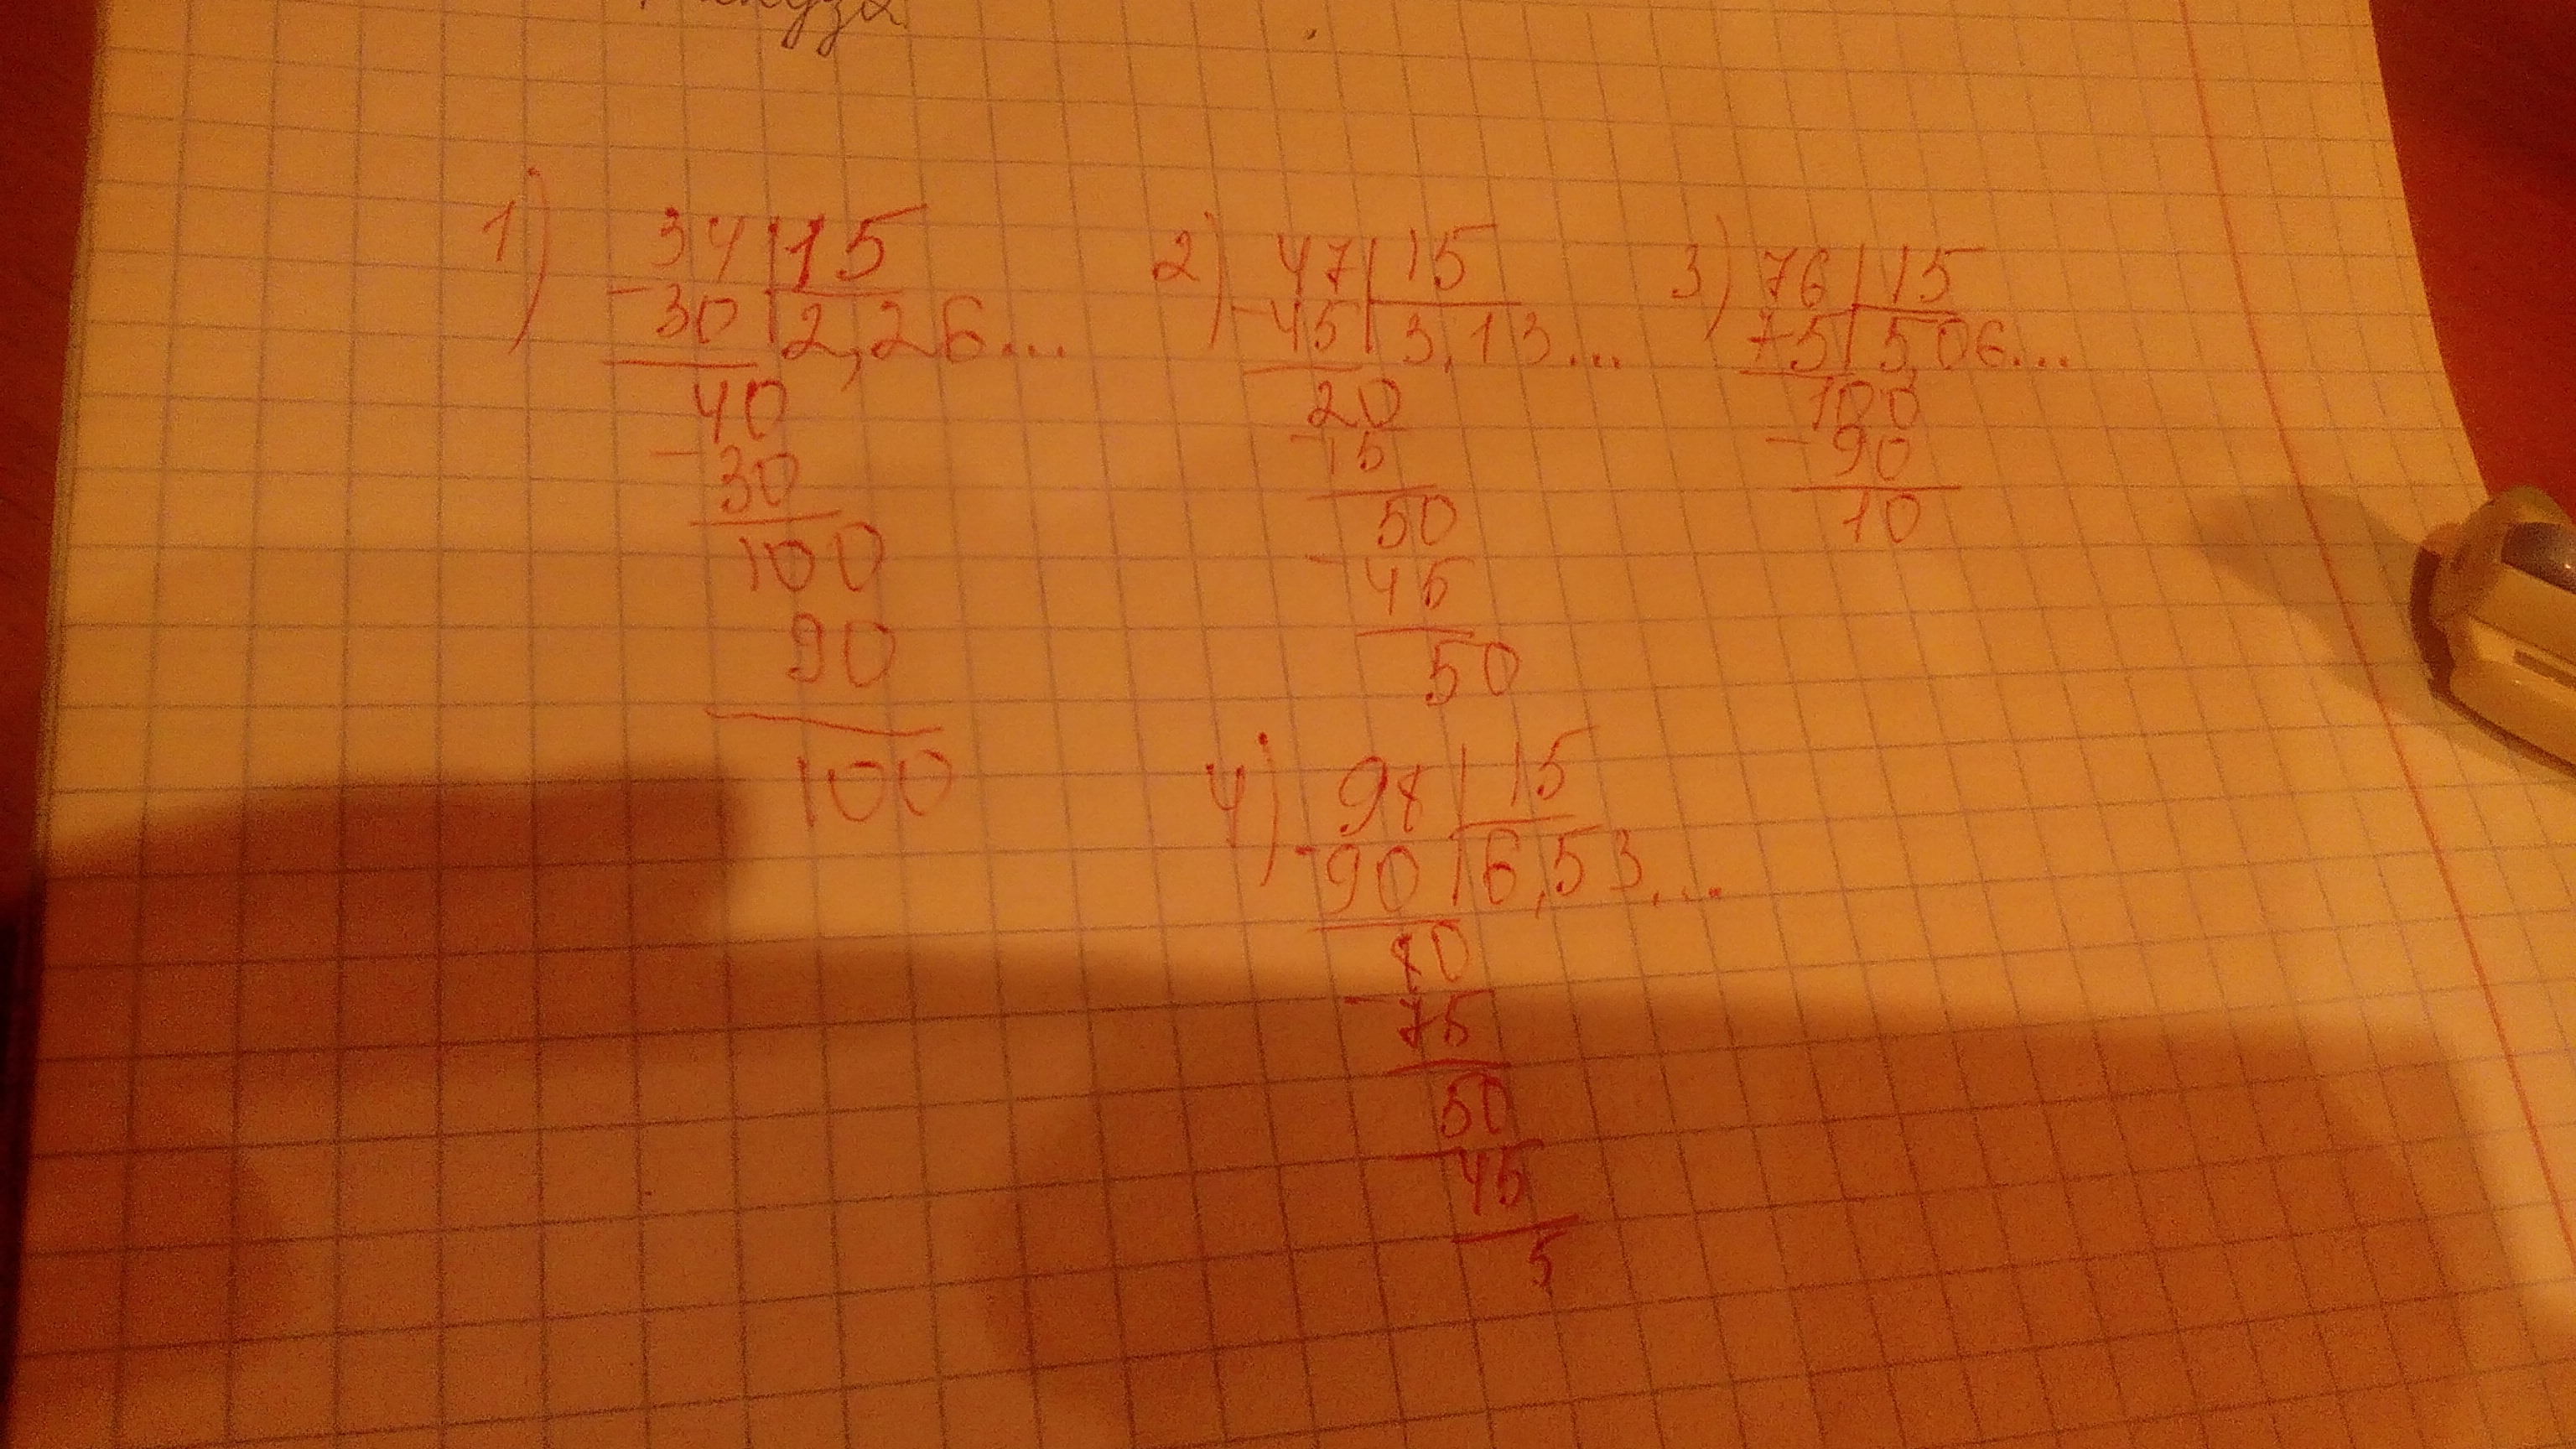 1) 34 | 15
- 30 | 2,26...
40
- 30
100
90
100
2) 47 | 15
- 45 | 3,13...
20
- 15
50
- 45
50
3) 76 | 15
75 | 5,06...
100
- 90
10
4) 98 | 15
- 90 | 6,53...
80
- 75
50
- 45
5